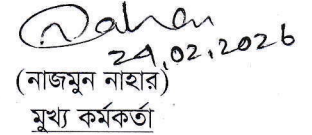 Nahar
24.02.2026
(নাজমুন নাহার)
মুখ্য কর্মকর্তা